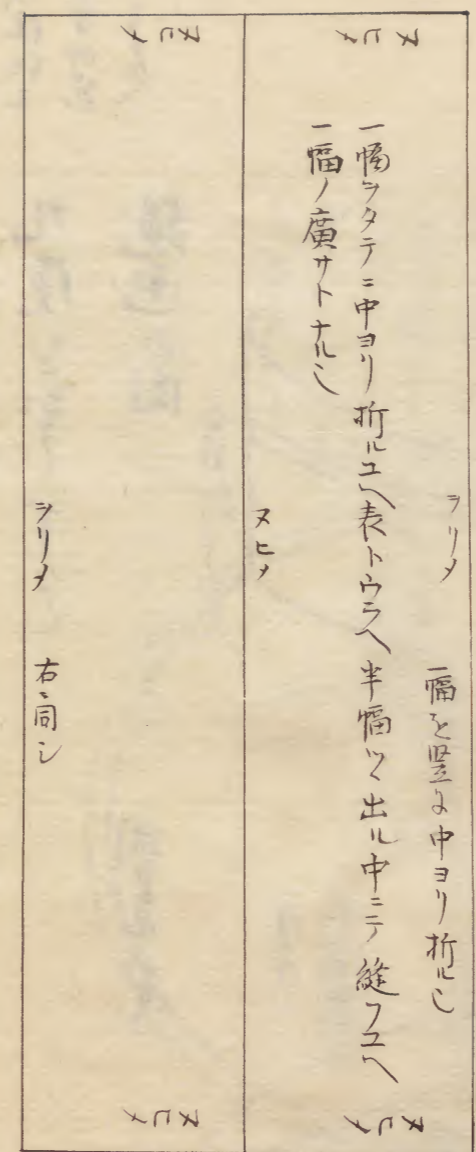 ヌヒメ
ヲリメ
一幅を竪に中ヨリ折ル也
一幅ヲタテニ中ヨリ折ルユヘ表トウラヘ半幅ツヽ出ル中ニテ縫フユヘ
一幅ノ廣サトナル也
ヌヒメ
ヌヒメ
ヌヒメ
ヲリメ
右ニ同シ
ヌヒメ